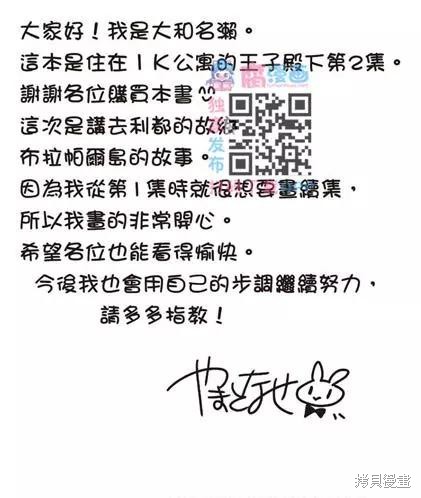 大家好！我是大和名瀨。
這本是住在１Ｋ公寓的王子殿下第2集。
謝謝各位購買本書
這次是講去利都的故
布拉帕爾島的故事。
因為我從第1集時就很想要畫續集，
所以我畫的非常開心。
希望各位也能看得愉快。
今後我也會用自己的步調繼續努力，
請多多指教！
やまとなせ
漫画
独家发布
拷貝漫畫